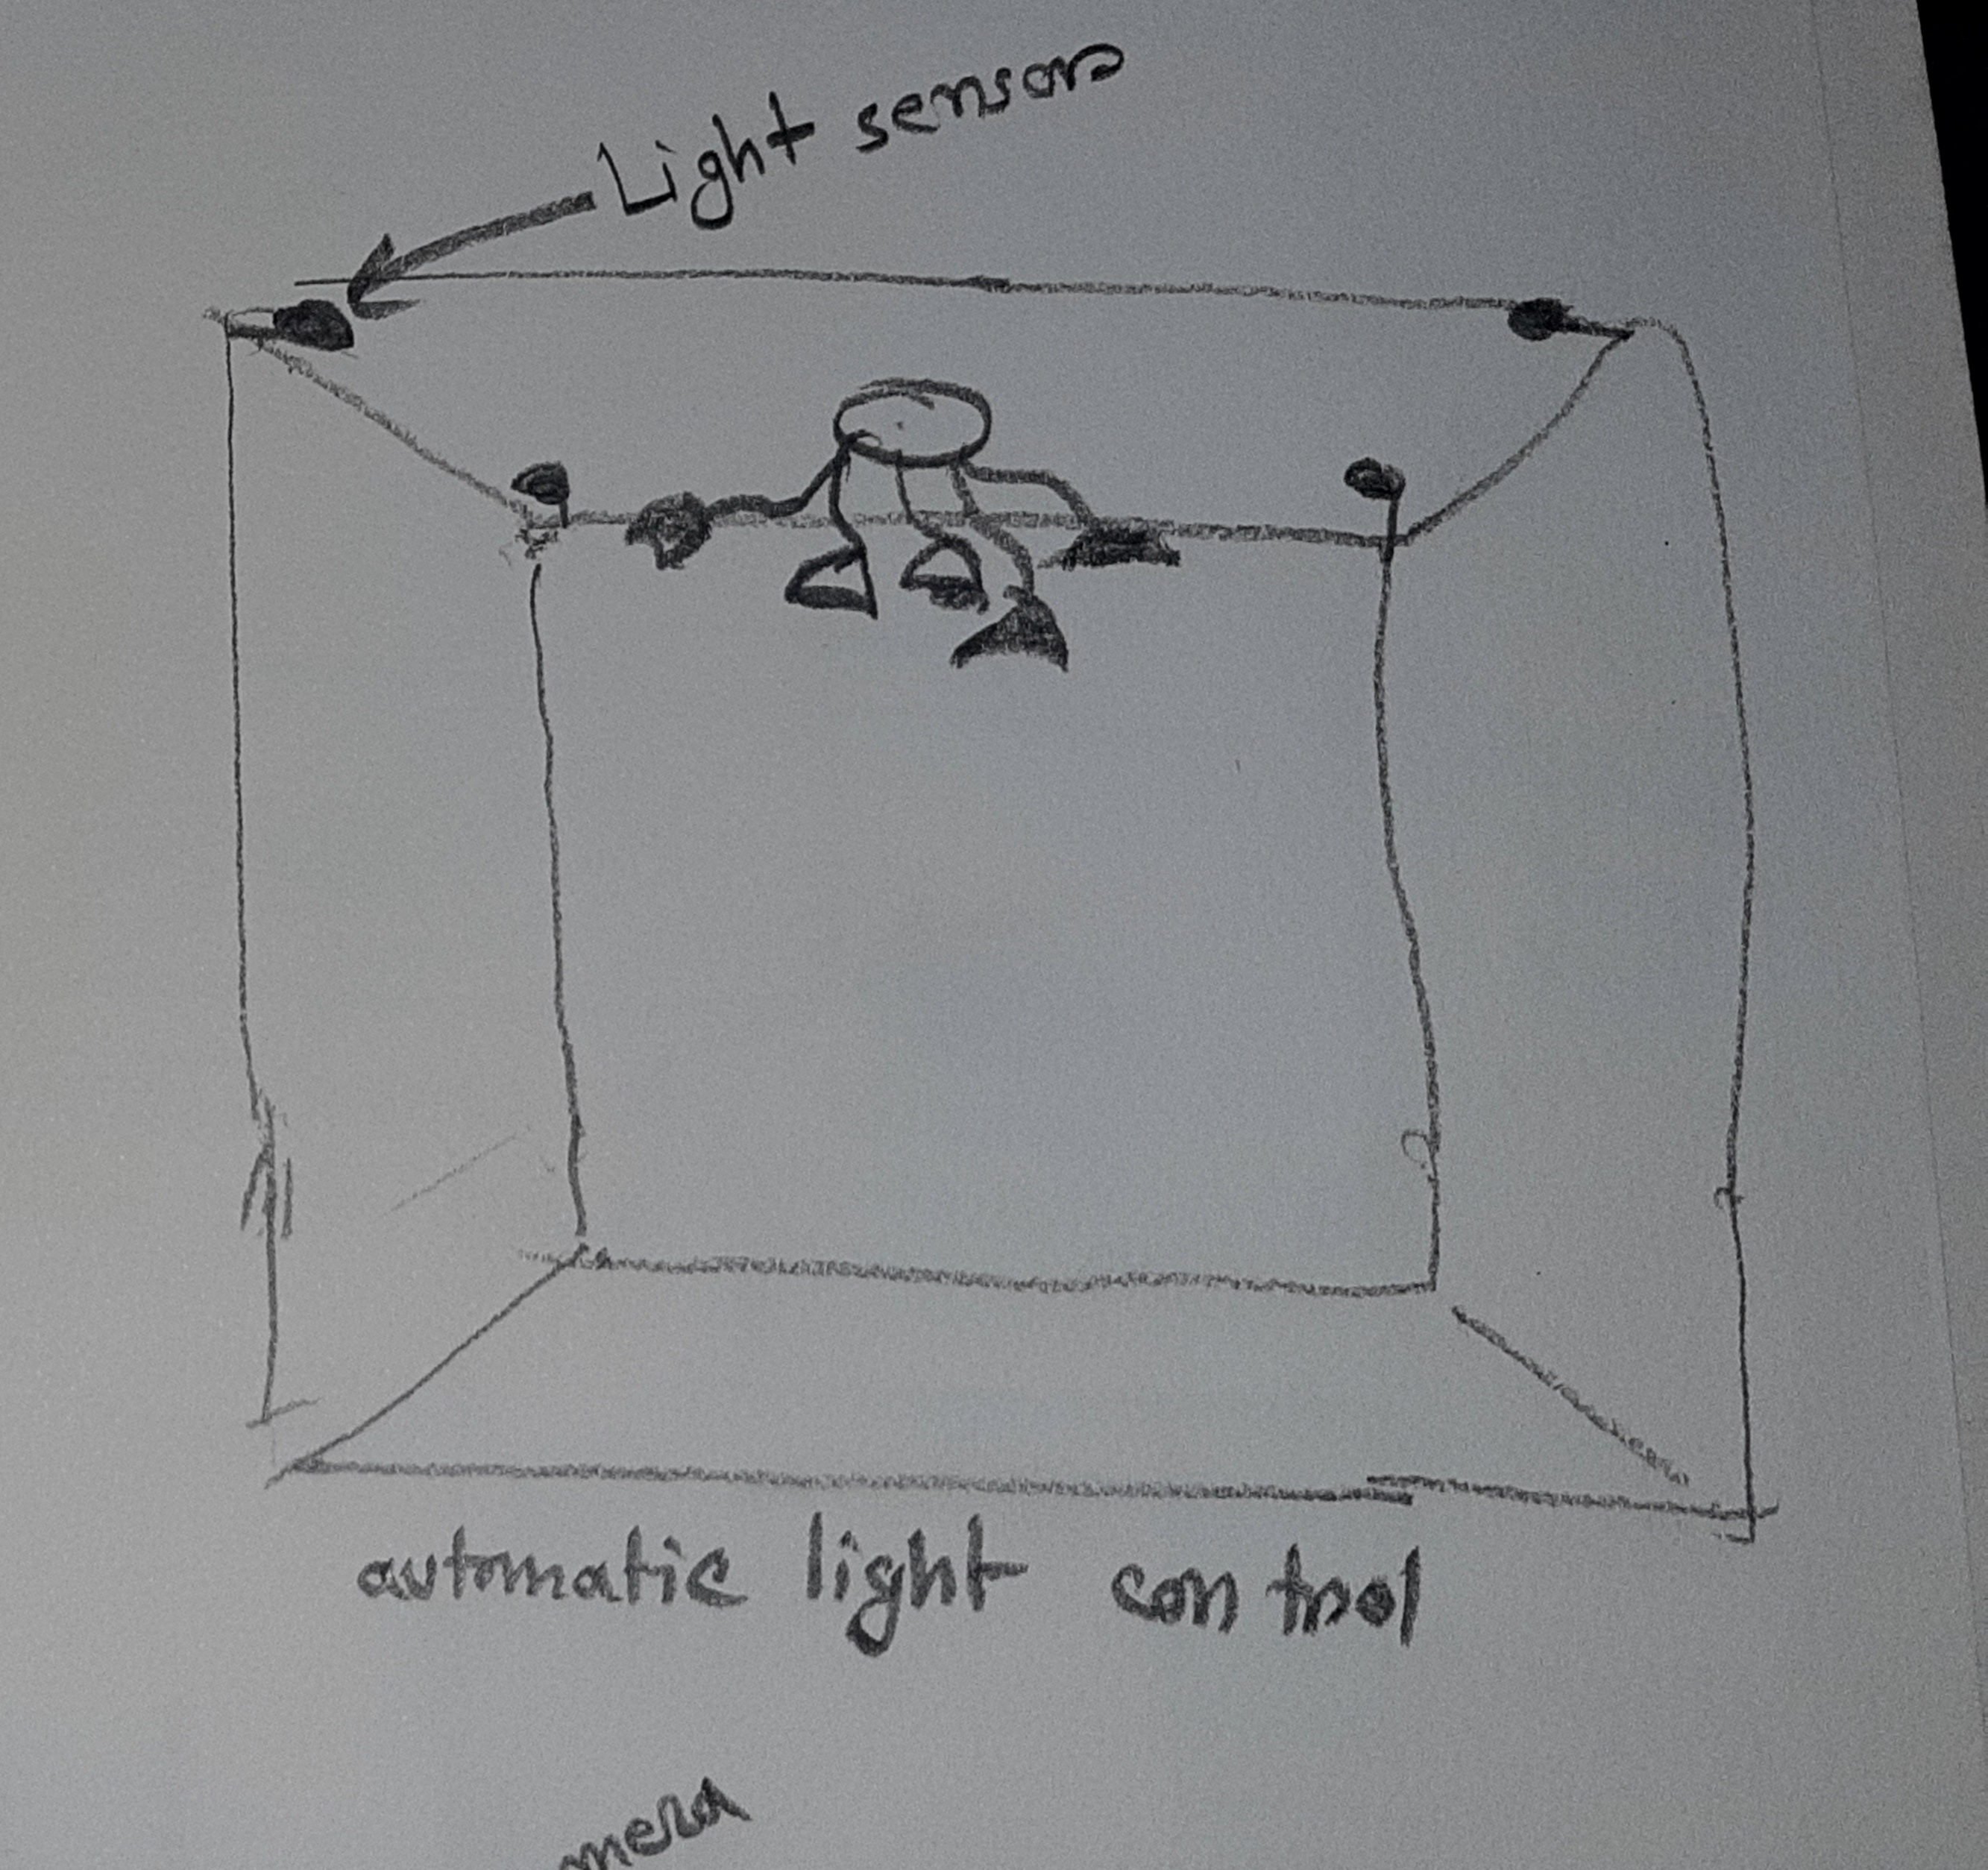 Light sensors
automatic light control
mera